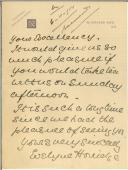 Your Excellency.
It would give us so
much pleasure if
you would take tea
with us on Sunday
afternoon.
It is such a long time
since we had the
pleasure of seeing you
Yours very sincerely
Evelyne